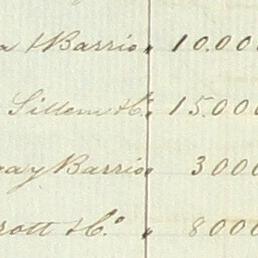 a & Barrio " 10.000
Sillem & C.º " 15.000
Barrio " 3000
rott & C.º " 8000